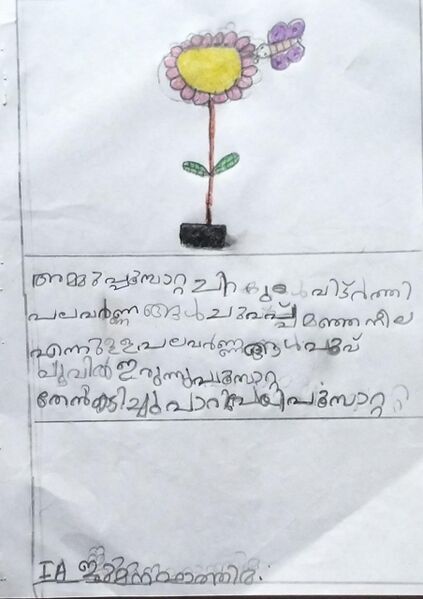 അമ്മുപ്പൂമ്പാറ്റ ചിറകുകൾ വിടർത്തി
പലവർണ്ണങ്ങൾ ചുവപ്പ് മഞ്ഞ നീല
എന്നുള്ള പലവർണ്ണങ്ങൾ പൂവ്
പൂവിൽ ഇരുന്നു പൂമ്പാറ്റ
തേൻകുടിച്ചു പാറിപ്പോയി പൂമ്പാറ്റ
IA